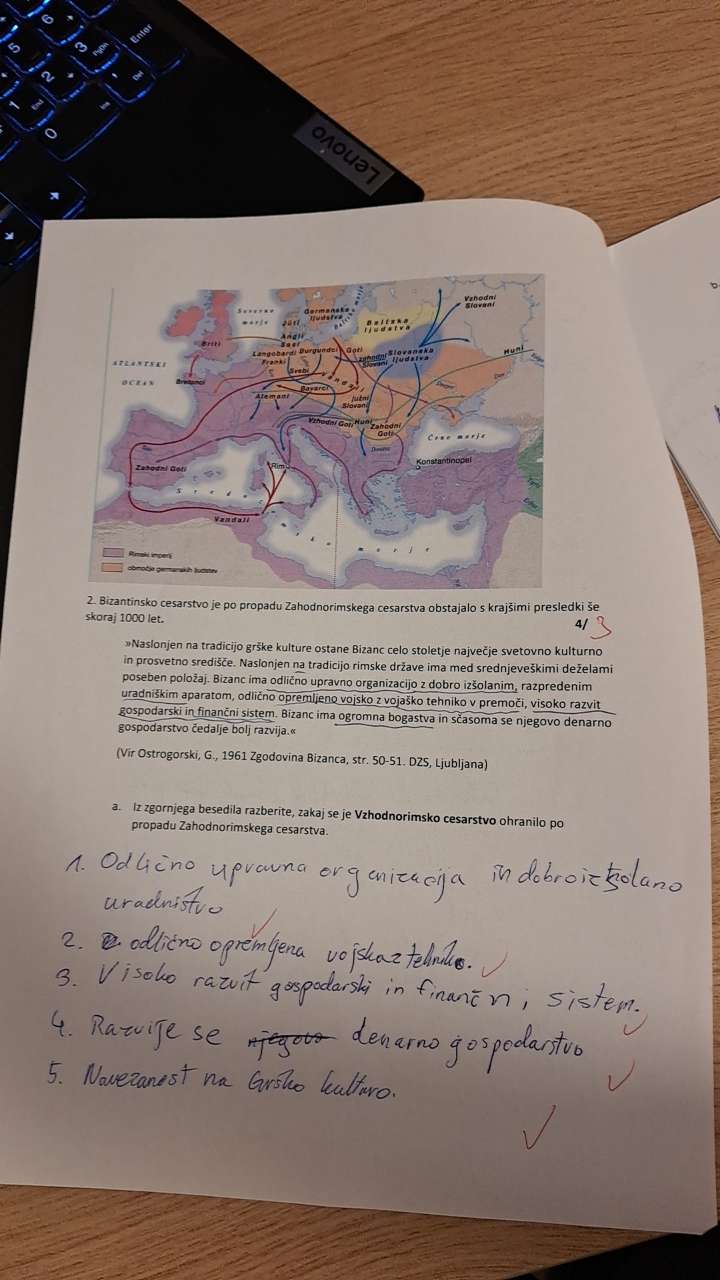 5
6
Enter
3
PgDn
2
1
End
Del
Ins
0
Lenovo
Vzhodni
Slovani
Severno
morje
Germanska
ljudstva
Jüti
Baltska
ljudstva
Angli
Sasi
Briti
Langobardi
Burgundci
Goti
Franki
zahodni
Slovani
Slovanska
ljudstva
Huni
ATLANTSKI
OCEAN
Bretonci
Svebi
Vandali
Alemani
Bavarci
južni
Slovani
Dneper
Don
Vzhodni Goti
Huni
Zahodni
Goti
Črno morje
Donava
Zahodni Goti
Rim
Konstantinopel
Vandali
morje
Rimski imperij
območje germanskih ljudstev
2. Bizantinsko cesarstvo je po propadu Zahodnorimskega cesarstva obstajalo s krajšimi presledki še
skoraj 1000 let.
4/ 3
»Naslonjen na tradicijo grške kulture ostane Bizanc celo stoletje največje svetovno kulturno
in prosvetno središče. Naslonjen na tradicijo rimske države ima med srednjeveškimi deželami
poseben položaj. Bizanc ima odlično upravno organizacijo z dobro izšolanim, razpredenim
uradniškim aparatom, odlično opremljeno vojsko z vojaško tehniko v premoči, visoko razvit
gospodarski in finančni sistem. Bizanc ima ogromna bogastva in sčasoma se njegovo denarno
gospodarstvo čedalje bolj razvija.«
(Vir Ostrogorski, G., 1961 Zgodovina Bizanca, str. 50-51. DZS, Ljubljana)
a. Iz zgornjega besedila razberite, zakaj se je Vzhodnorimsko cesarstvo ohranilo po
propadu Zahodnorimskega cesarstva.
1. Odlično upravna organizacija in dobro izšolano
uradništvo
2. odlično opremljena vojska z tehniko.
3. Visoko razvit gospodarski in finančni sistem.
4. Razvije se njegovo denarno gospodarstvo
5. Navezanest na Grško kulturo.